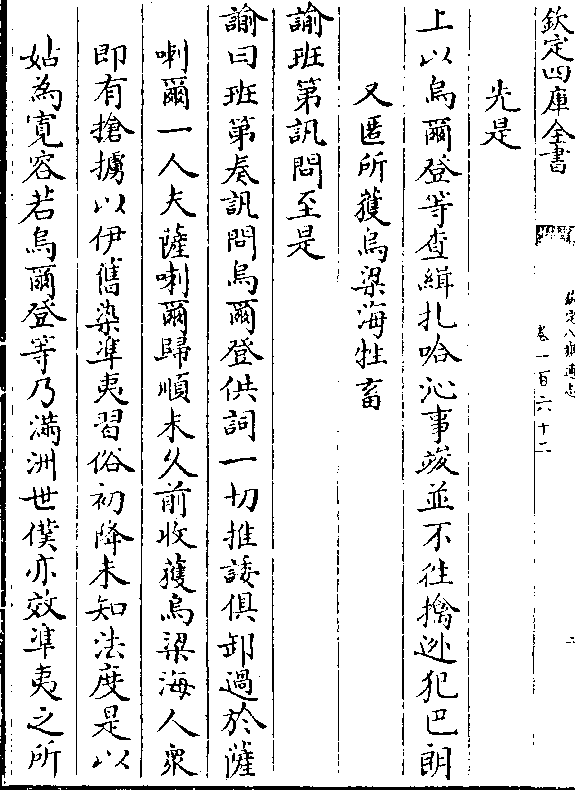 欽定四庫全書
欽定八旗通志
卷一百六十二
先是
上以烏爾登等查緝扎哈沁事竣並不徃擒逃犯巴朗
又匿所獲烏梁海牲畜
諭班第訊問至是
諭曰班第奏訊問烏爾登供詞一切推諉俱卸過於薩
喇爾一人夫薩喇爾歸順未久前收獲烏梁海人衆
即有搶擄以伊舊染準夷習俗初降未知法度是以
姑為寛容若烏爾登等乃滿洲世僕亦效準夷之所